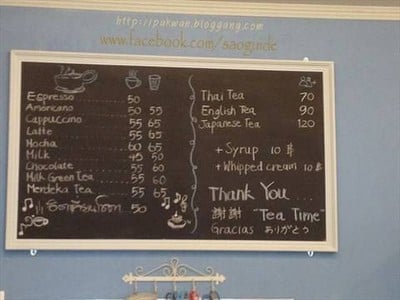 http://pakwan.bloggang.com
www.facebook.com/saoguide
Espresso 50
Americano 50 55
Cappuccino 55 65
Latte 55 65
Mocha 60 65
Milk 45 50
Chocolate 55 60
Milk Green Tea 55 60
Merdeka Tea 55 65
50
Thai Tea 70
English Tea 90
Japanese Tea 120
+ Syrup 10 ฿
+ Whipped cream 10 ฿
Thank You ...
謝謝 "Tea Time"
Gracias ありがとう